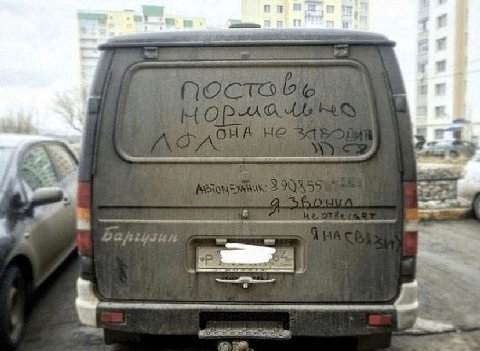 поставь
нормально
лол
она не заводится
))) 
автомеханик: 890855
я звонил
не отвечает
я на связи
Баргузин